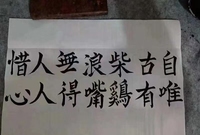 自古柴浪無人惜
唯有鷄嘴得人心